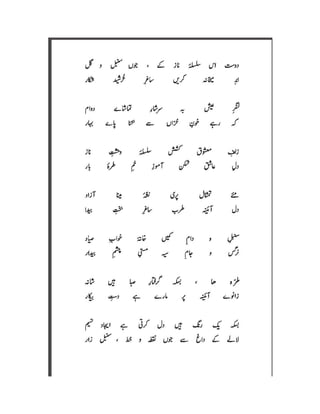 دوست اس سلسلۂ ناز کے ، جوں سنبل و گل
ابرِ میخانہ کریں ساغرِ خُرشید شکار
لنگرِ عیش پہ سرشارِ تماشاے دوام
کہ رہے خونِ خزاں سے بہ حنا پاے بہار
زلفِ معشوق کشش سلسلۂ وحشتِ ناز
دلِ عاشق شکن آموزِ خمِ طرۂ یار
مئے تمثالِ پری نشۂ مینا آزاد
دلِ آئینہ طرب ساغرِ بختِ بیدار
سنبل و دام کمیں خانۂ خوابِ صیاد
نرگس و جام سیہ مستیِ چشمِ بیدار
طرہ ہا ، بسکہ گرفتارِ صبا ہیں شانہ
زانوے آئینہ پر مارے ہے دستِ بیکار
بسکہ یک رنگ ہیں دل کرتی ہے ایجاد نسیم
لالے کے داغ سے جوں نقطہ و خط ، سنبلِ زار